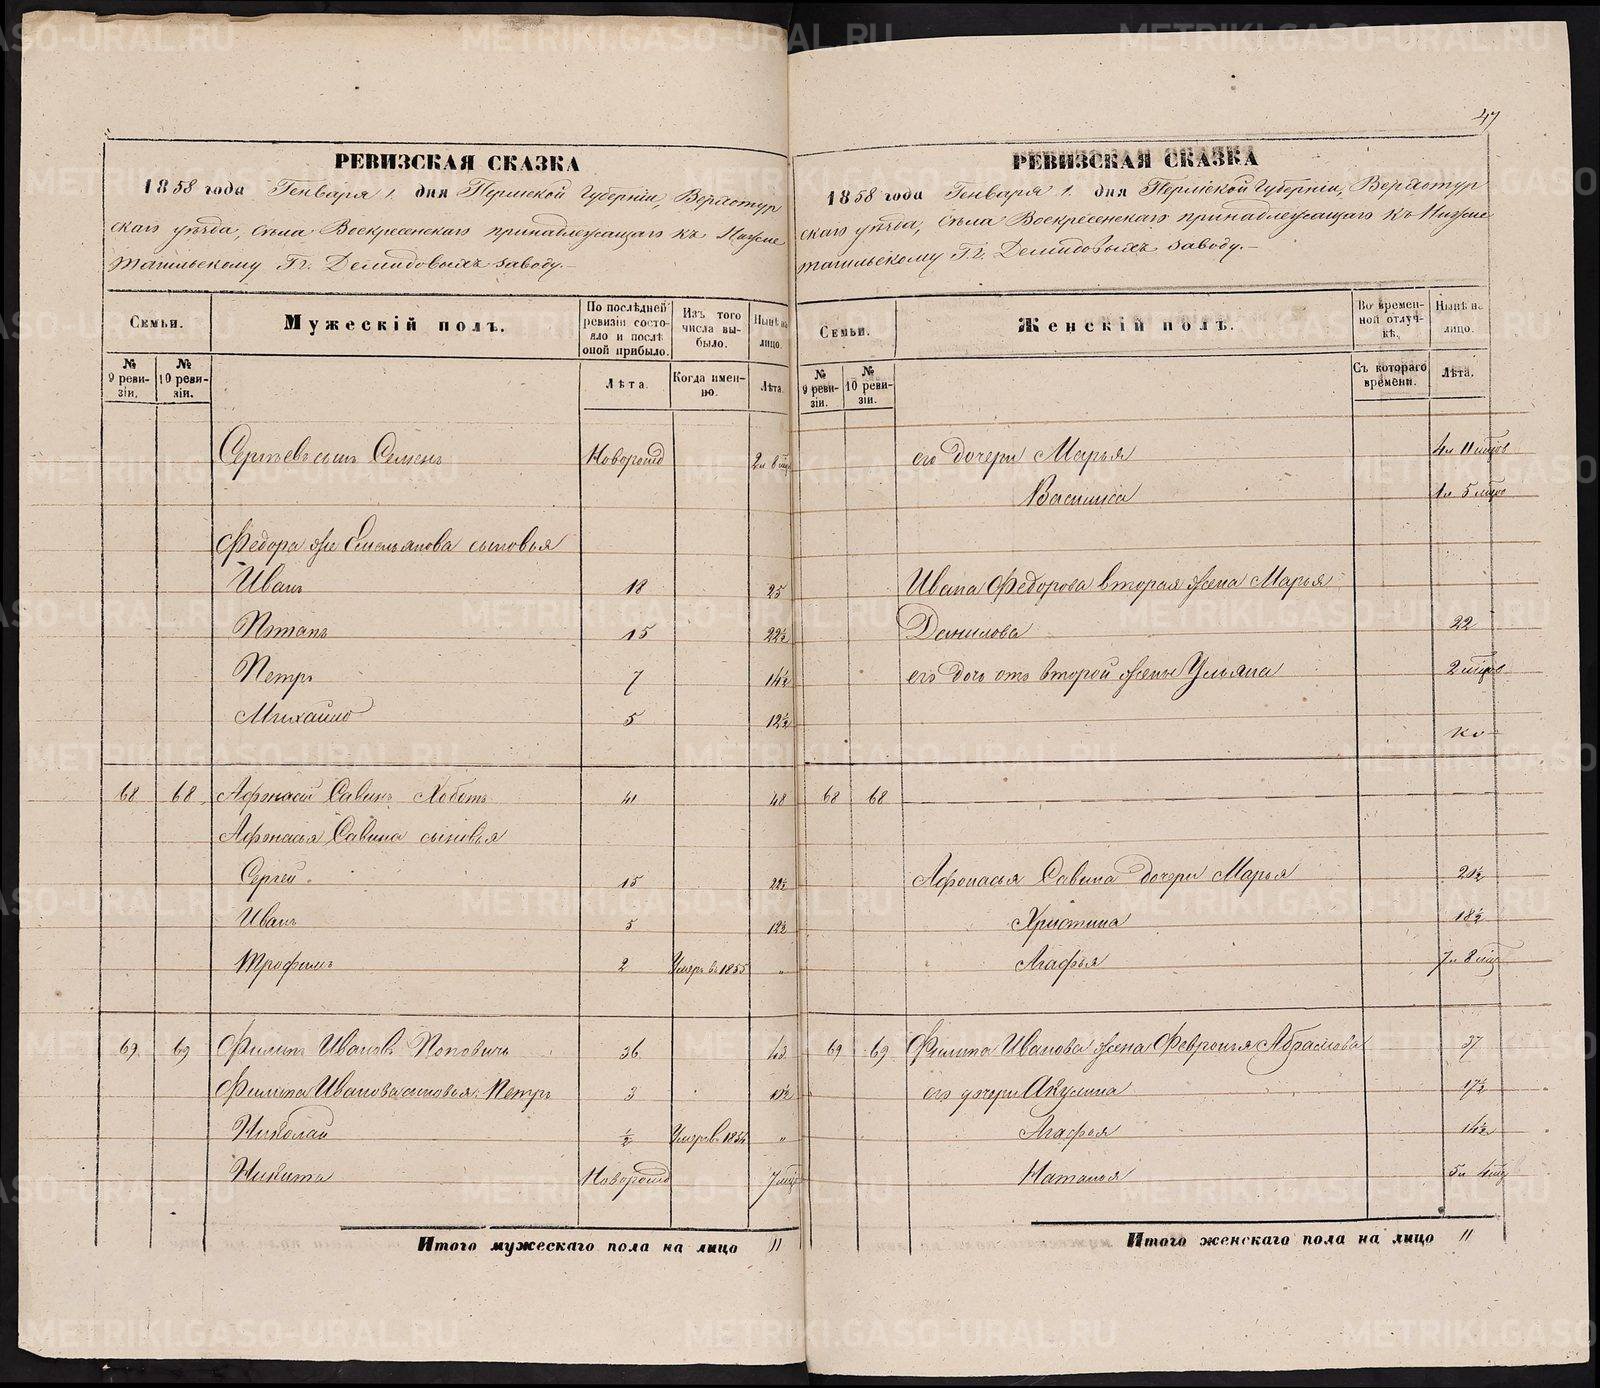 47
РЕВИЗСКАЯ СКАЗКА
1858 года Генваря 1. дня Пермской Губернiи, Верхотур
скаго уѣзда, Села Воскресенскаго принадлежащаго къ Нижне
тагильскому Гг. Демидовыхъ заводу.
Семьи.
Мужескiй полъ.
По послѣдней ревизiи состояло и послѣ оной прибыло.
Изъ того числа выбыло.
Нынѣ на лицо.
№ 9 ревизiи.
№ 10 ревизiи.
Лѣта.
Когда именно.
Лѣта.
Сергѣевъ сынъ Семенъ Новорожд 2 л 8 мц
Федора же Емельянова сыновья
Иванъ 18 25
Потапъ 15 22½
Петръ 7 14½
Михайло 5 12½
68 68 Афонасiй Савинъ Хоботъ 41 48
Афонасья Савина сыновья
Сергей 15 22½
Иванъ 5 12½
Трофимъ 2 Умеръ въ 1855 "
69 69 Филипъ Ивановъ Поповичь 36 43
Филипа Иванова сыновья Петръ 3 10½
Николай ½ Умеръ въ 1854 "
Никита Новорожд 7 мц
Итого мужескаго пола на лицо 11
РЕВИЗСКАЯ СКАЗКА
1858 года Генваря 1. дня Пермской Губернiи, Верхотур
скаго уѣзда, Села Воскресенскаго принадлежащаго къ Нижне
тагильскому Г.г. Демидовыхъ заводу.
Семьи.
Женскiй полъ.
Во временной отлучкѣ.
Нынѣ на лицо.
№ 9 ревизiи.
№ 10 ревизiи.
Съ котораго времени.
Лѣта.
его дочери Марья 4 л 11 мцов
Василиса 1 л 5 мцов
Ивана Федорова вторая жена Марья
Данилова 22
его дочь отъ второй жены Ульяна 2 мцов
68 68
Афонасья Савина дочери Марья 20½
Христина 18½
Агафья 7 л 8 мц
69 69 Филипа Иванова жена Февронья Абрамова 37
его дочери Акулина 17½
Агафья 14½
Наталья 5 л 4 мц
Итого женскаго пола на лицо 11
METRIKI.GASO-URAL.RU